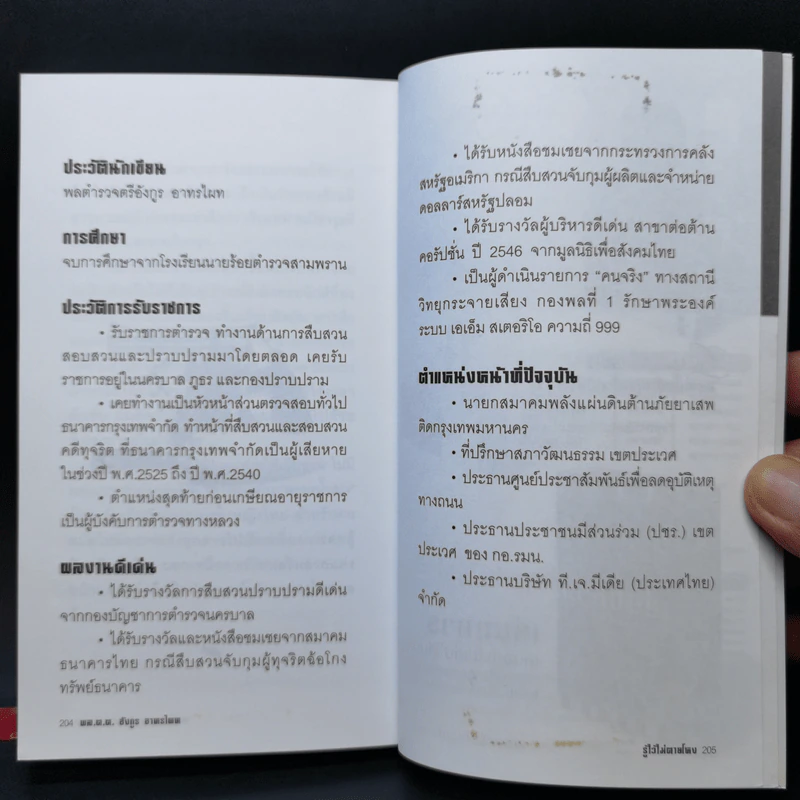 ประวัตินักเขียน
พลตำรวจตรีอังกูร อาทรไผท
การศึกษา
จบการศึกษาจากโรงเรียนนายร้อยตำรวจสามพราน
ประวัติการรับราชการ
• รับราชการตำรวจ ทำงานด้านการสืบสวน
สอบสวนและปราบปรามมาโดยตลอด เคยรับ
ราชการอยู่ในนครบาล ภูธร และกองปราบปราม
• เคยทำงานเป็นหัวหน้าส่วนตรวจสอบทั่วไป
ธนาคารกรุงเทพจำกัด ทำหน้าที่สืบสวนและสอบสวน
คดีทุจริต ที่ธนาคารกรุงเทพจำกัดเป็นผู้เสียหาย
ในช่วงปี พ.ศ.2525 ถึง ปี พ.ศ.2540
• ตำแหน่งสุดท้ายก่อนเกษียณอายุราชการ
เป็นผู้บังคับการตำรวจทางหลวง
ผลงานดีเด่น
• ได้รับรางวัลการสืบสวนปราบปรามดีเด่น
จากกองบัญชาการตำรวจนครบาล
• ได้รับรางวัลและหนังสือชมเชยจากสมาคม
ธนาคารไทย กรณีสืบสวนจับกุมผู้ทุจริตฉ้อโกง
ทรัพย์ธนาคาร
204 พล.ต.ต. อังกูร อาทรไผท
• ได้รับหนังสือชมเชยจากกระทรวงการคลัง
สหรัฐอเมริกา กรณีสืบสวนจับกุมผู้ผลิตและจำหน่าย
ดอลลาร์สหรัฐปลอม
• ได้รับรางวัลผู้บริหารดีเด่น สาขาต่อต้าน
คอรัปชั่น ปี 2546 จากมูลนิธิเพื่อสังคมไทย
• เป็นผู้ดำเนินรายการ "คนจริง" ทางสถานี
วิทยุกระจายเสียง กองพลที่ 1 รักษาพระองค์
ระบบ เอเอ็ม สเตอริโอ ความถี่ 999
ตำแหน่งหน้าที่ปัจจุบัน
• นายกสมาคมพลังแผ่นดินต้านภัยยาเสพ
ติดกรุงเทพมหานคร
• ที่ปรึกษาสภาวัฒนธรรม เขตประเวศ
• ประธานศูนย์ประชาสัมพันธ์เพื่อลดอุบัติเหตุ
ทางถนน
• ประธานประชาชนมีส่วนร่วม (ปชร.) เขต
ประเวศ ของ กอ.รมน.
• ประธานบริษัท ที.เจ.มีเดีย (ประเทศไทย)
จำกัด
รู้ไว้ไม่ตายโหง 205